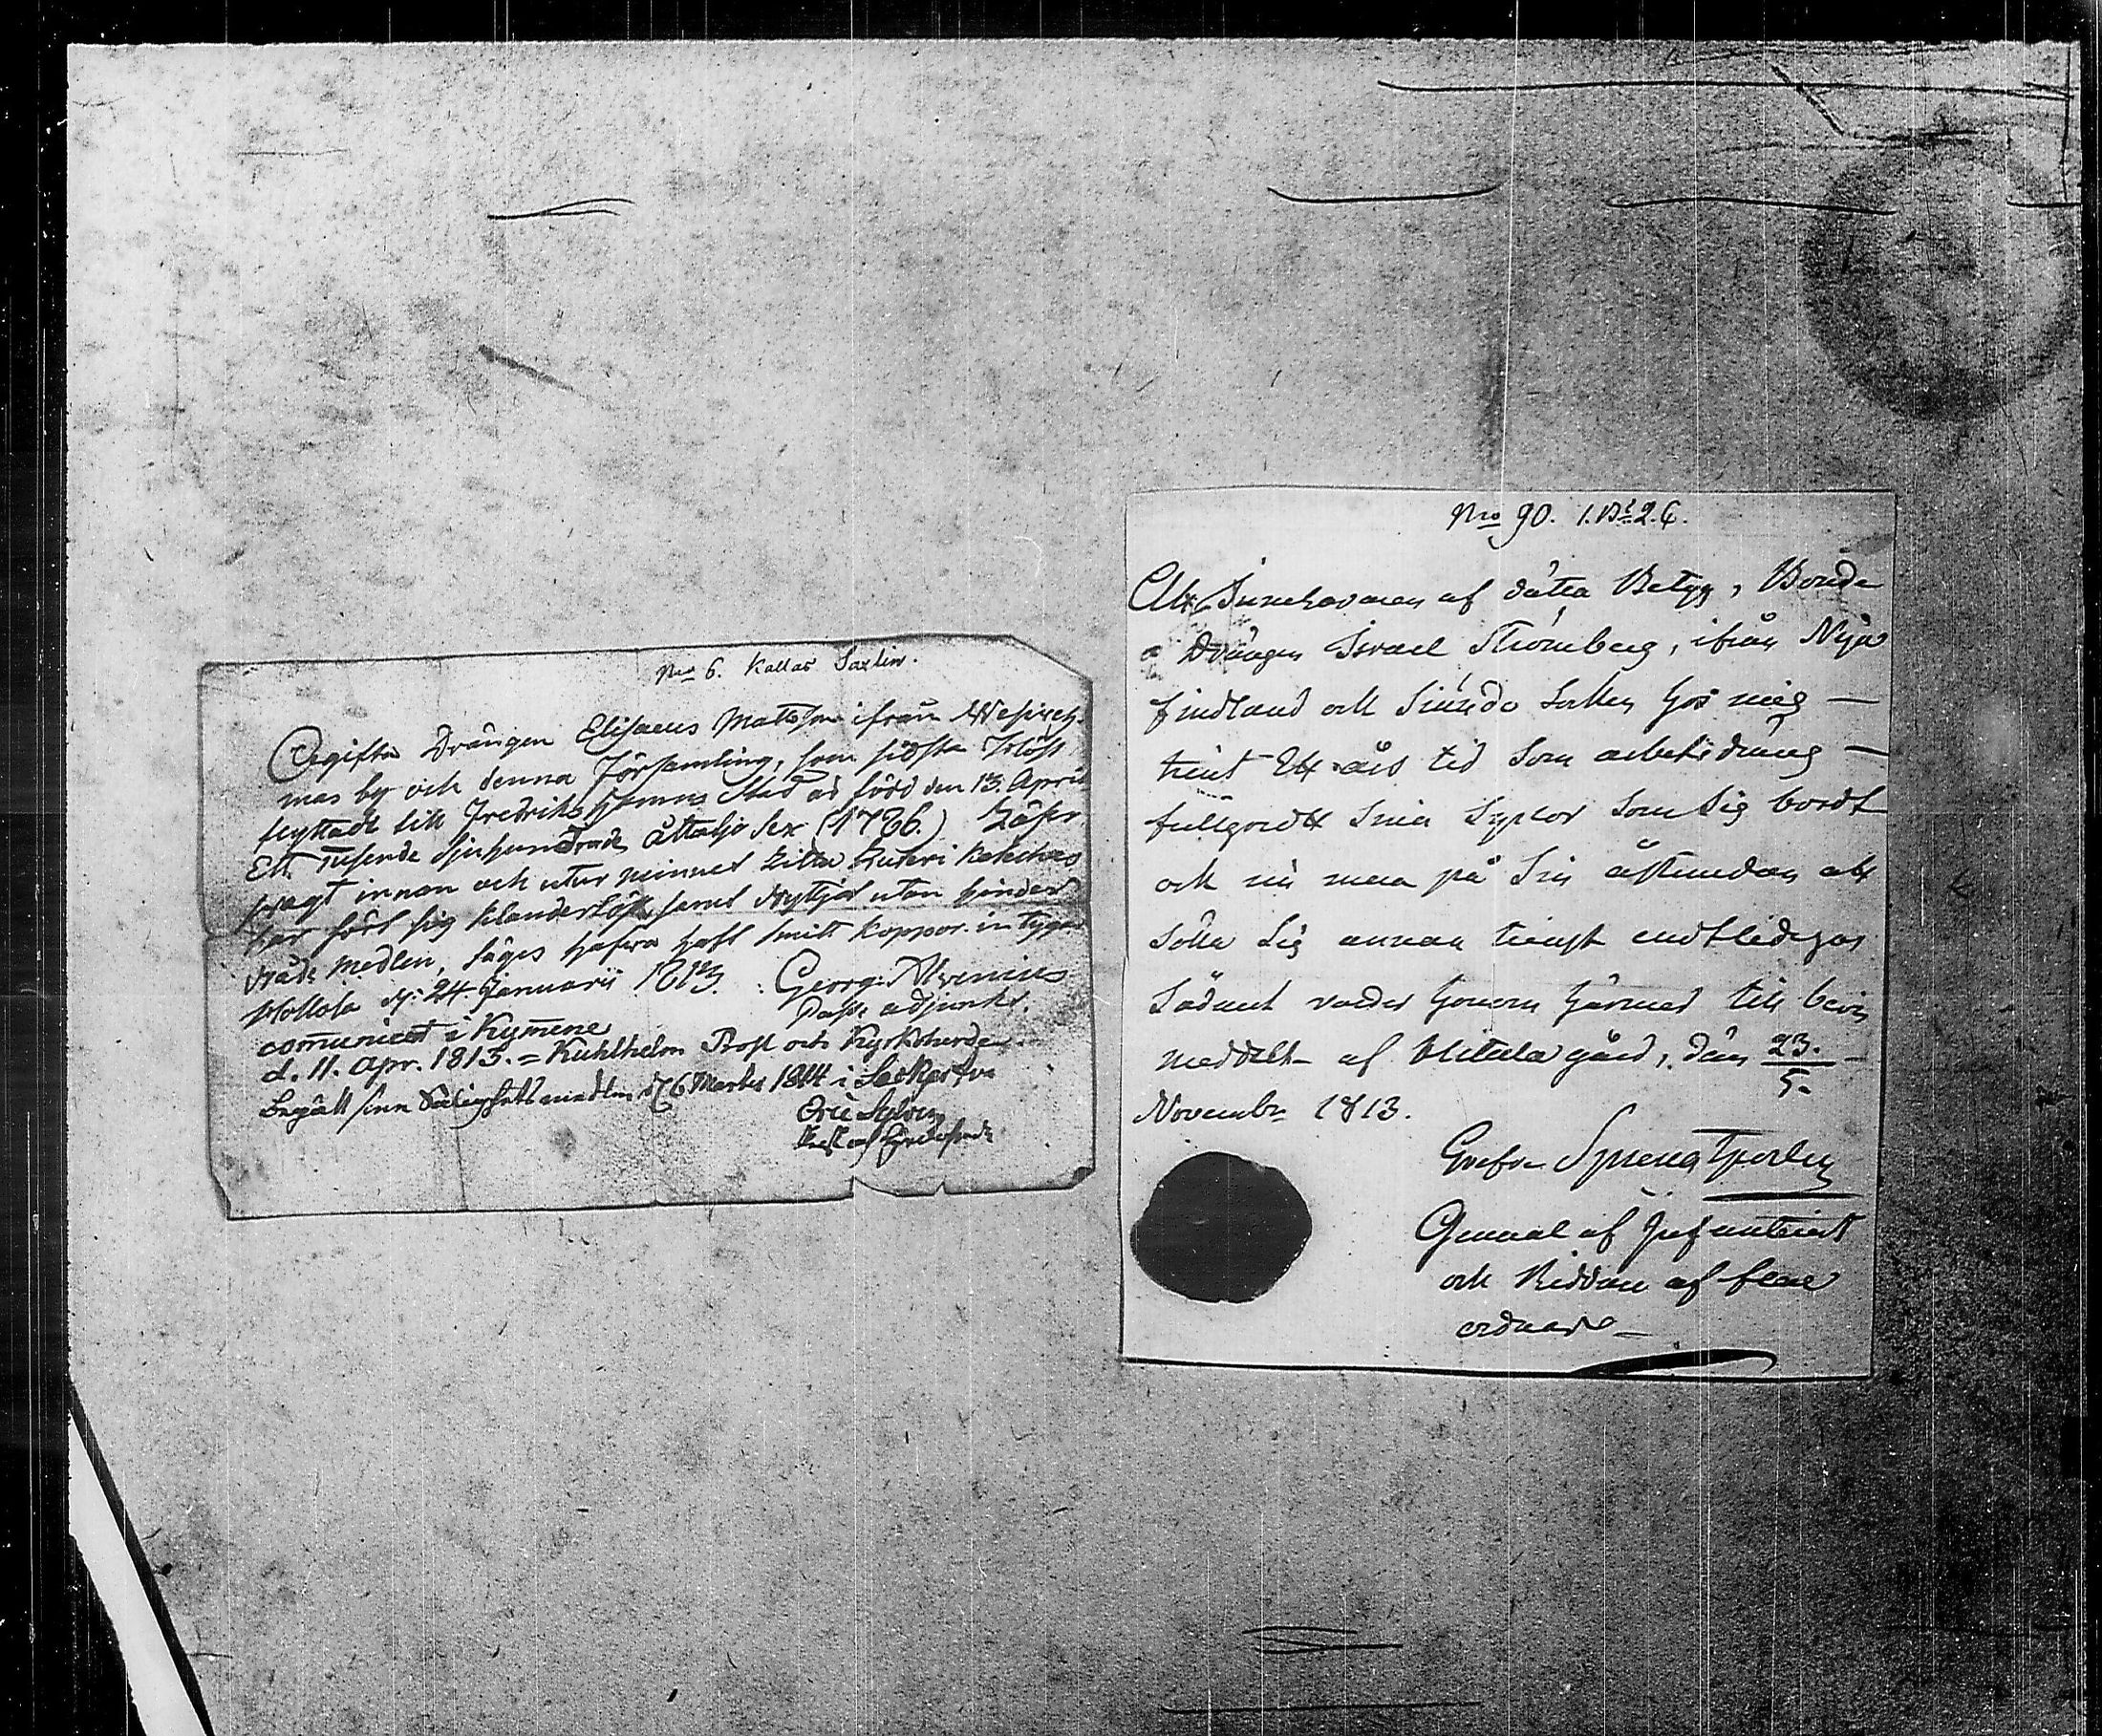 No 6. Kallas Saxlin.
Ogifta Drängen Elisaeus Mattsson ifrån Wesiveh-
mas by och denna Församling, som sidsta Höst
flyttadt till Fredrikshamns Stad är född den 13. April
Ett Tusende Sjuhundrade åttatjo Sex (1786.) Läser
svagt innan och utur minnet Lilla Luteri Kateches
har fört sig klanderlöst samt Nyttjat utan hinder
Nåds Medlen, säges hafva haft smitt koppor. intygar
Hollola d. 24. Januarii 1813. Georg: Alvenius
Past. adjunkt.
communicerat i Kymene
d. 11. Apr. 1813. = Kuhlhelm Prost och Kyrkoherde
Begått sina Salighets medlen d 6 Martii 1814 i
Eric
No 90. 1. 2. C.
Att Innehavaren af dätta Betyg, Bonde
Drängen Israel Strömberg, ifrån Nya
findland och Socken hos mig —
tient Ett års tid Som arbetsdräng —
fullgordt Sina Sysslor Som Sig bordt
och nu mera på Sin åstundan att
Söka Sig annan tienst endtledigas
Sådant varder honom härmed till bevis
meddelt af gård, dän 23./5. —
November 1813.
Grefve Sprengtporten
General af Infanteriet
och Riddare af flere
ordnar —